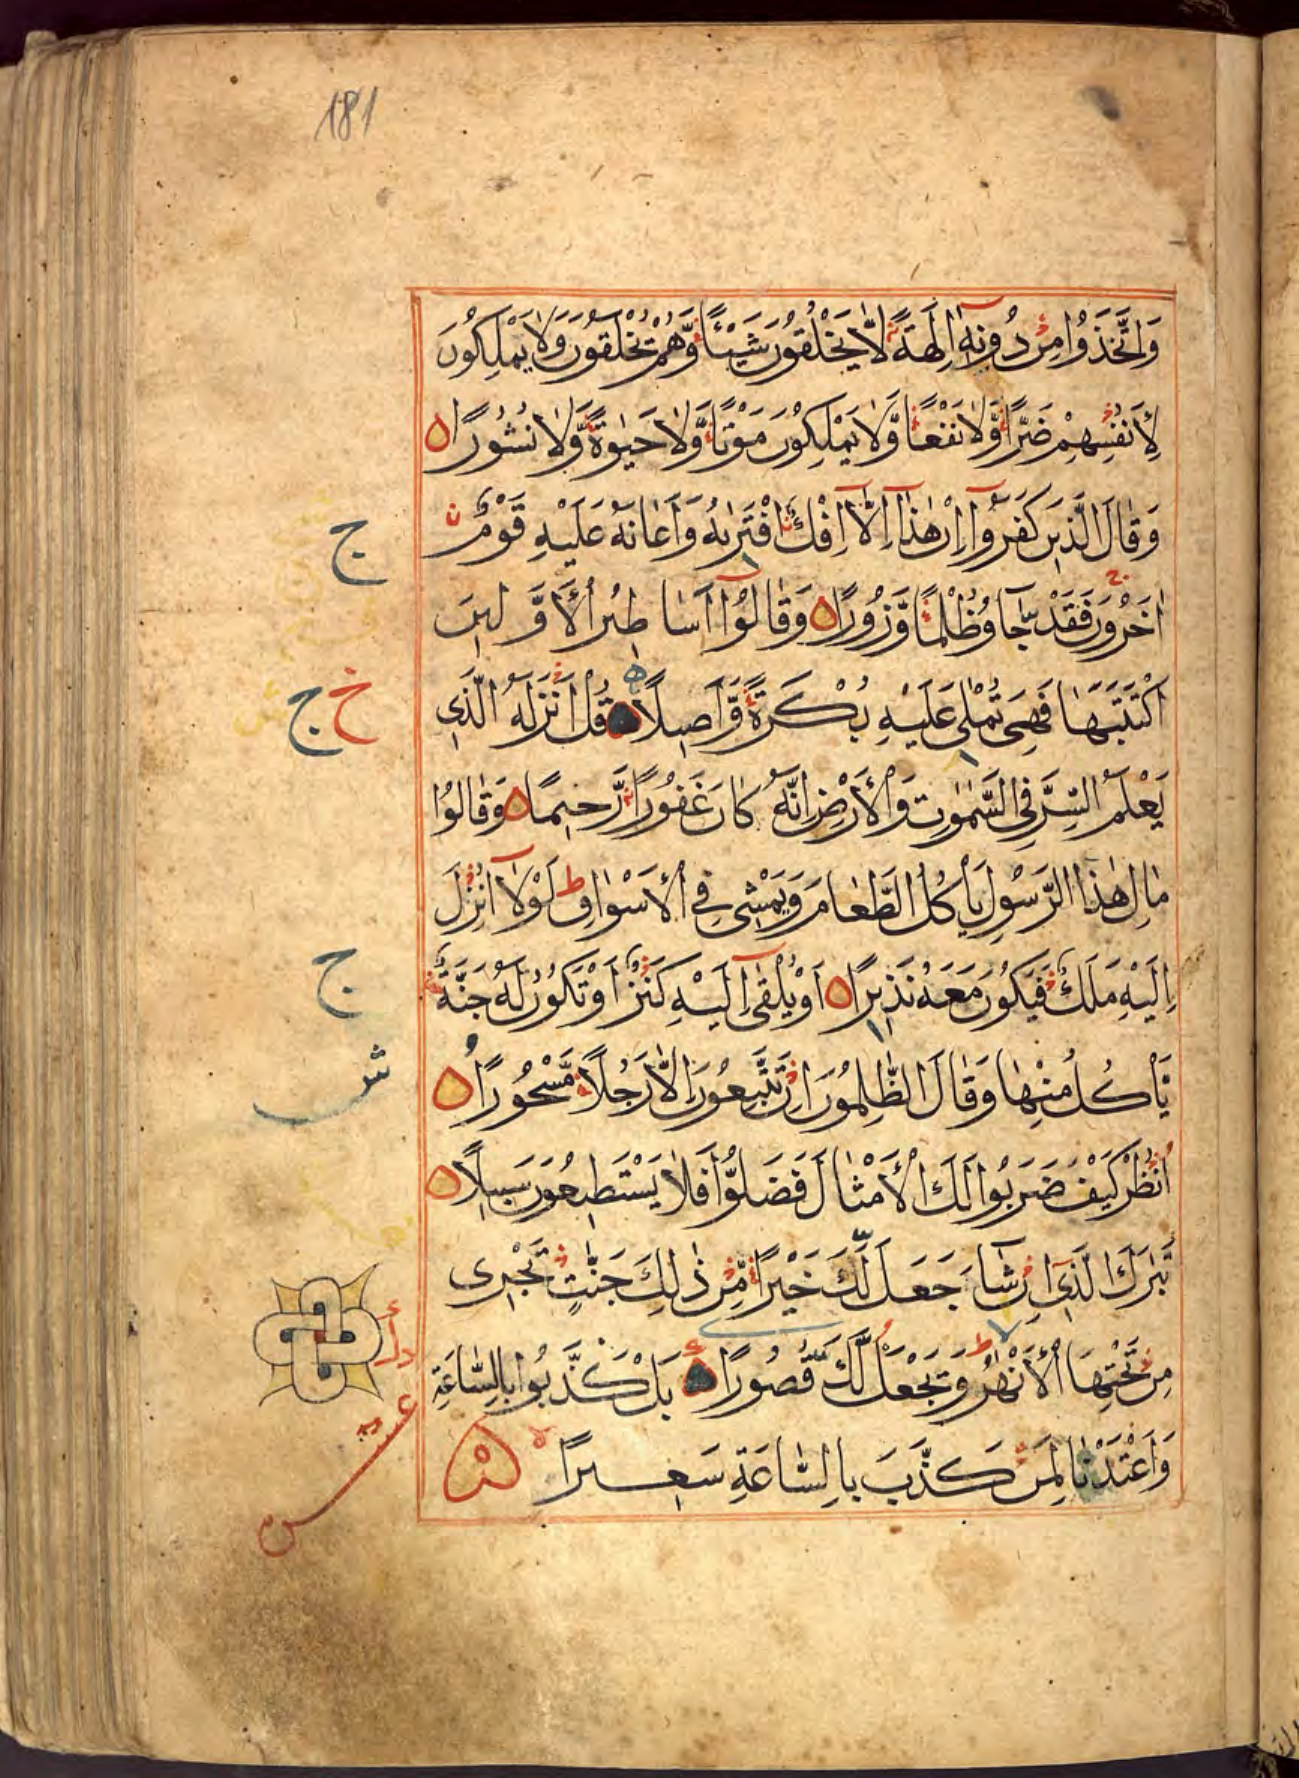 181
وَاتَّخَذُوا مِنْ دُونِهٖٓ اٰلِهَةً لَّا يَخْلُقُونَ شَيْـًٔا وَّهُمْ يُخْلَقُونَ وَلَا يَمْلِكُونَ
لِاَنْفُسِهِمْ ضَرًّا وَّلَا نَفْعًا وَّلَا يَمْلِكُونَ مَوْتًا وَّلَا حَيٰوةً وَّلَا نُشُورًا
وَقَالَ الَّذِينَ كَفَرُوٓا اِنْ هٰذَٓا اِلَّآ اِفْكٌ افْتَرٰىهُ وَاَعَانَهُ عَلَيْهِ قَوْمٌ
ج
اٰخَرُونَ فَقَدْ جَآءُو ظُلْمًا وَّزُورًا وَقَالُوٓا اَسَاطِيرُ الْاَوَّلِينَ
اكْتَتَبَهَا فَهِىَ تُمْلٰى عَلَيْهِ بُكْرَةً وَّاَصِيلًا قُلْ اَنْزَلَهُ الَّذِى
خ ج
يَعْلَمُ السِّرَّ فِى السَّمٰوٰتِ وَالْاَرْضِ اِنَّهُ كَانَ غَفُورًا رَّحِيمًا وَقَالُوا
مَالِ هٰذَا الرَّسُولِ يَاْكُلُ الطَّعَامَ وَيَمْشِى فِى الْاَسْوَاقِ ط لَوْلَآ اُنْزِلَ
اِلَيْهِ مَلَكٌ فَيَكُونَ مَعَهُ نَذِيرًا اَوْ يُلْقٰٓى اِلَيْهِ كَنْزٌ اَوْ تَكُونُ لَهُ جَنَّةٌ
ج
يَّاْكُلُ مِنْهَا وَقَالَ الظّٰلِمُونَ اِنْ تَتَّبِعُونَ اِلَّا رَجُلًا مَّسْحُورًا
ش
اُنْظُرْ كَيْفَ ضَرَبُوا لَكَ الْاَمْثَالَ فَضَلُّوا فَلَا يَسْتَطِيعُونَ سَبِيلًا
تَبٰرَكَ الَّذِىٓ اِنْ شَآءَ جَعَلَ لَكَ خَيْرًا مِّنْ ذٰلِكَ جَنّٰتٍ تَجْرِى
مِنْ تَحْتِهَا الْاَنْهٰرُ وَيَجْعَلْ لَّكَ قُصُورًا بَلْ كَذَّبُوا بِالسَّاعَةِ
وَاَعْتَدْنَا لِمَنْ كَذَّبَ بِالسَّاعَةِ سَعِيرًا